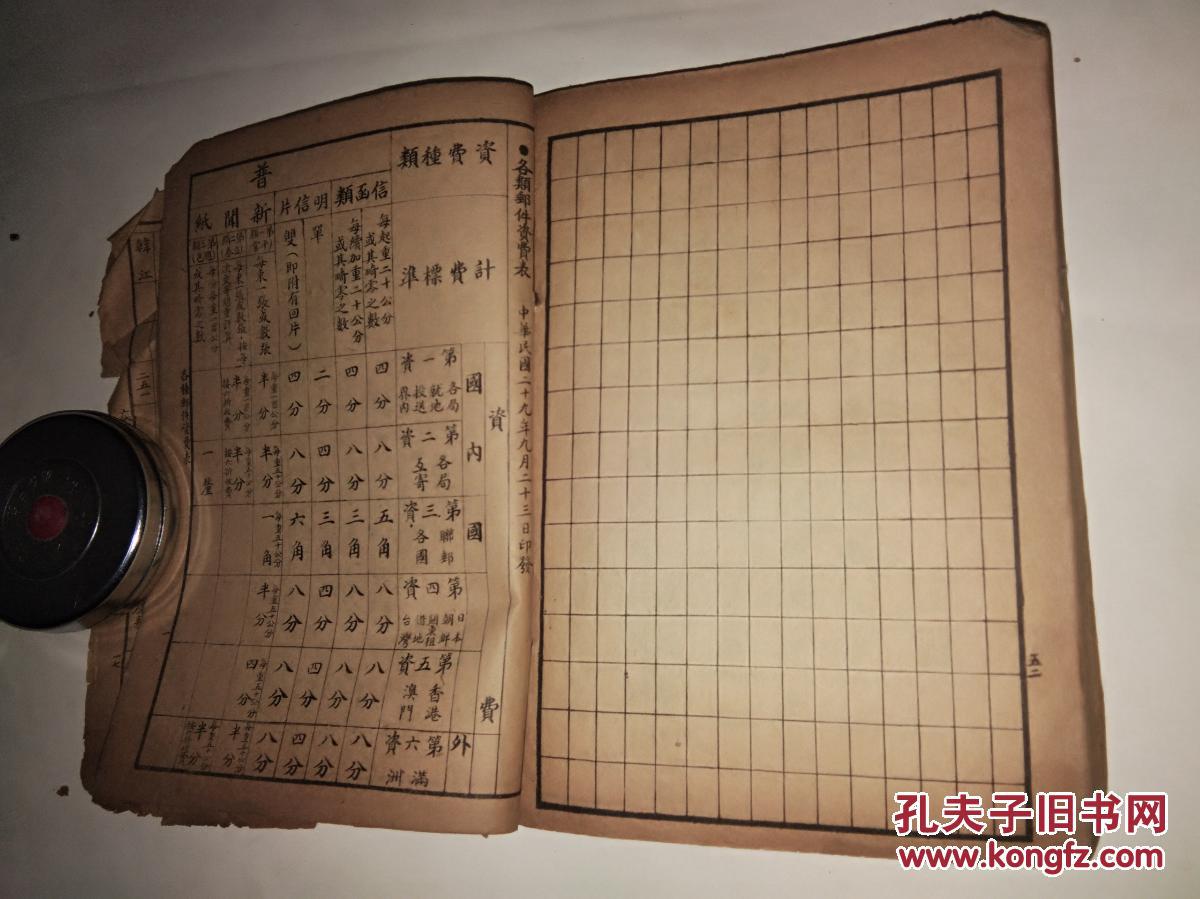 ●各類郵件資費表 中華民國二十九年九月二十三日印發
資費種類
計費標準
資費
國內
國
外
第一資 各局就地投送界內
第二資 各局互寄
第三資 聯郵各國
第四資 日本朝鮮關東租借地台灣
第五資 香港澳門
第六資 滿洲
普
信函類
每起重二十公分或其畸零之數
四分 八分 五角 八分 八分 八分
每續加重二十公分或其畸零之數
四分 八分 三角 八分 八分 八分
明信片
單
二分 四分 三角 四分 四分 四分
雙(即附有回片)
四分 八分 六角 八分 八分 八分
新聞紙
每束一張或數張
半分 半分 一角 半分 四分 半分
半分 半分 半分
每重一百公分或其畸零之數
一厘
各類郵件資費表
韓江
二五一
一七
五二
孔夫子旧书网
www.kongfz.com